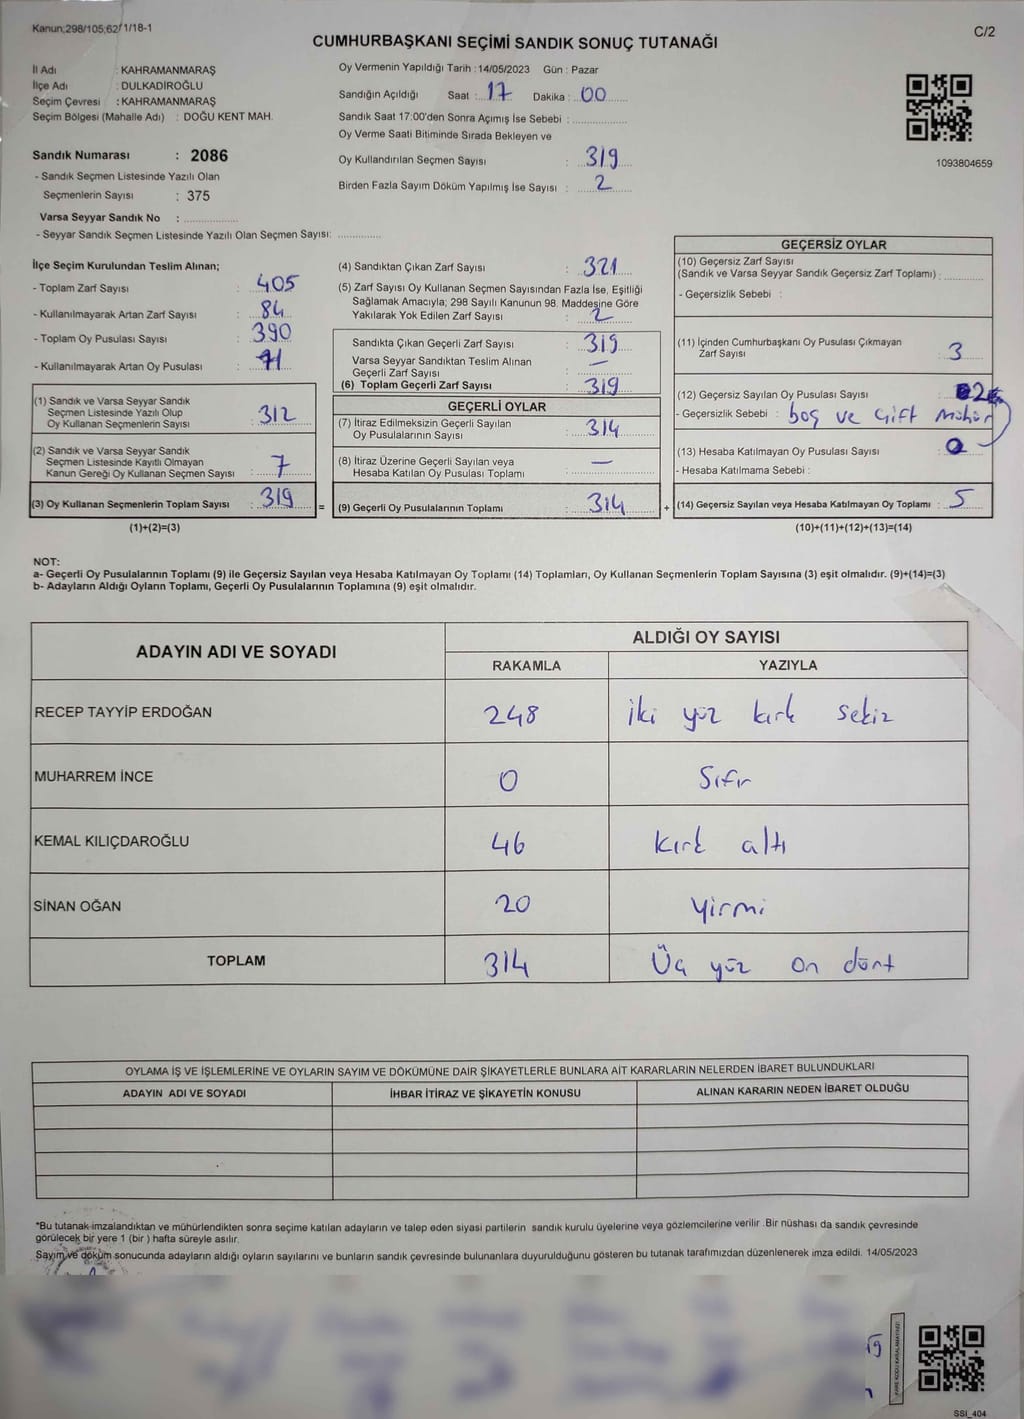 Kanun;298/105;62/1/18-1
C/2
CUMHURBAŞKANI SEÇİMİ SANDIK SONUÇ TUTANAĞI
İl Adı : KAHRAMANMARAŞ
İlçe Adı : DULKADİROĞLU
Seçim Çevresi : KAHRAMANMARAŞ
Seçim Bölgesi (Mahalle Adı) : DOĞU KENT MAH.
Sandık Numarası : 2086
- Sandık Seçmen Listesinde Yazılı Olan
Seçmenlerin Sayısı : 375
Varsa Seyyar Sandık No : ..................
- Seyyar Sandık Seçmen Listesinde Yazılı Olan Seçmen Sayısı: ..............
Oy Vermenin Yapıldığı Tarih : 14/05/2023 Gün : Pazar
Sandığın Açıldığı Saat : 17 Dakika : 00
Sandık Saat 17:00'den Sonra Açımış İse Sebebi : ..................
Oy Verme Saati Bitiminde Sırada Bekleyen ve
Oy Kullandırılan Seçmen Sayısı : 319
Birden Fazla Sayım Döküm Yapılmış İse Sayısı : 2
1093804659
İlçe Seçim Kurulundan Teslim Alınan;
- Toplam Zarf Sayısı : 405
- Kullanılmayarak Artan Zarf Sayısı : 84
- Toplam Oy Pusulası Sayısı : 390
- Kullanılmayarak Artan Oy Pusulası : 71
(1) Sandık ve Varsa Seyyar Sandık
Seçmen Listesinde Yazılı Olup
Oy Kullanan Seçmenlerin Sayısı : 312
(2) Sandık ve Varsa Seyyar Sandık
Seçmen Listesinde Kayıtlı Olmayan
Kanun Gereği Oy Kullanan Seçmen Sayısı : 7
(3) Oy Kullanan Seçmenlerin Toplam Sayısı : 319 =
(1)+(2)=(3)
(4) Sandıktan Çıkan Zarf Sayısı : 321
(5) Zarf Sayısı Oy Kullanan Seçmen Sayısından Fazla İse, Eşitliği
Sağlamak Amacıyla; 298 Sayılı Kanunun 98. Maddesine Göre
Yakılarak Yok Edilen Zarf Sayısı : 2
Sandıkta Çıkan Geçerli Zarf Sayısı : 319
Varsa Seyyar Sandıktan Teslim Alınan
Geçerli Zarf Sayısı : —
(6) Toplam Geçerli Zarf Sayısı : 319
GEÇERLİ OYLAR
(7) İtiraz Edilmeksizin Geçerli Sayılan
Oy Pusulalarının Sayısı : 314
(8) İtiraz Üzerine Geçerli Sayılan veya
Hesaba Katılan Oy Pusulası Toplamı : —
(9) Geçerli Oy Pusulalarının Toplamı : 314 +
GEÇERSİZ OYLAR
(10) Geçersiz Zarf Sayısı
(Sandık ve Varsa Seyyar Sandık Geçersiz Zarf Toplamı) : ............
- Geçersizlik Sebebi :
(11) İçinden Cumhurbaşkanı Oy Pusulası Çıkmayan
Zarf Sayısı : 3
(12) Geçersiz Sayılan Oy Pusulası Sayısı : 2
- Geçersizlik Sebebi : boş ve çift mühür
(13) Hesaba Katılmayan Oy Pusulası Sayısı : 0
- Hesaba Katılmama Sebebi :
(14) Geçersiz Sayılan veya Hesaba Katılmayan Oy Toplamı : 5
(10)+(11)+(12)+(13)=(14)
NOT:
a- Geçerli Oy Pusulalarının Toplamı (9) ile Geçersiz Sayılan veya Hesaba Katılmayan Oy Toplamı (14) Toplamları, Oy Kullanan Seçmenlerin Toplam Sayısına (3) eşit olmalıdır. (9)+(14)=(3)
b- Adayların Aldığı Oyların Toplamı, Geçerli Oy Pusulalarının Toplamına (9) eşit olmalıdır.
ADAYIN ADI VE SOYADI
ALDIĞI OY SAYISI
RAKAMLA YAZIYLA
RECEP TAYYİP ERDOĞAN 248 iki yüz kırk sekiz
MUHARREM İNCE 0 Sıfır
KEMAL KILIÇDAROĞLU 46 kırk altı
SİNAN OĞAN 20 yirmi
TOPLAM 314 Üç yüz on dört
OYLAMA İŞ VE İŞLEMLERİNE VE OYLARIN SAYIM VE DÖKÜMÜNE DAİR ŞİKAYETLERLE BUNLARA AİT KARARLARIN NELERDEN İBARET BULUNDUKLARI
ADAYIN ADI VE SOYADI İHBAR İTİRAZ VE ŞİKAYETİN KONUSU ALINAN KARARIN NEDEN İBARET OLDUĞU
*Bu tutanak imzalandıktan ve mühürlendikten sonra seçime katılan adayların ve talep eden siyasi partilerin sandık kurulu üyelerine veya gözlemcilerine verilir .Bir nüshası da sandık çevresinde
görülecek bir yere 1 (bir ) hafta süreyle asılır.
Sayım ve döküm sonucunda adayların aldığı oyların sayılarını ve bunların sandık çevresinde bulunanlara duyurulduğunu gösteren bu tutanak tarafımızdan düzenlenerek imza edildi. 14/05/2023
SSİ_404